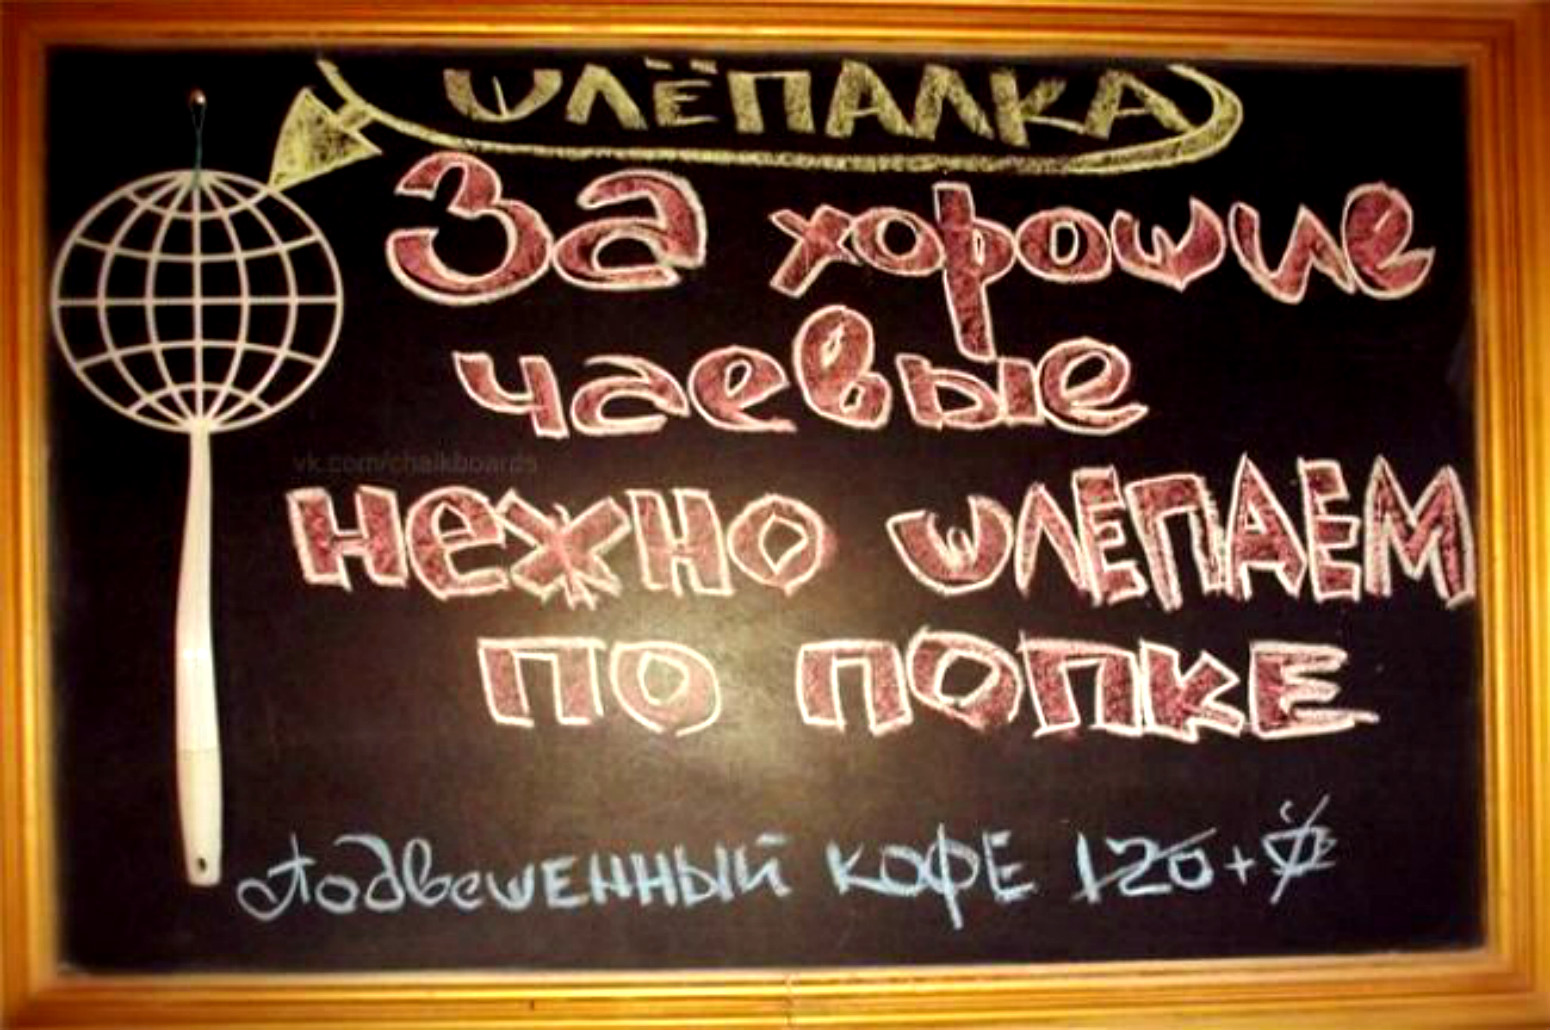 ШЛЁПАЛКА
За хорошие
чаевые
vk.com/chalkboards
нежно шлЕПАЕМ
по попке
Подвешенный кофЕ 120+